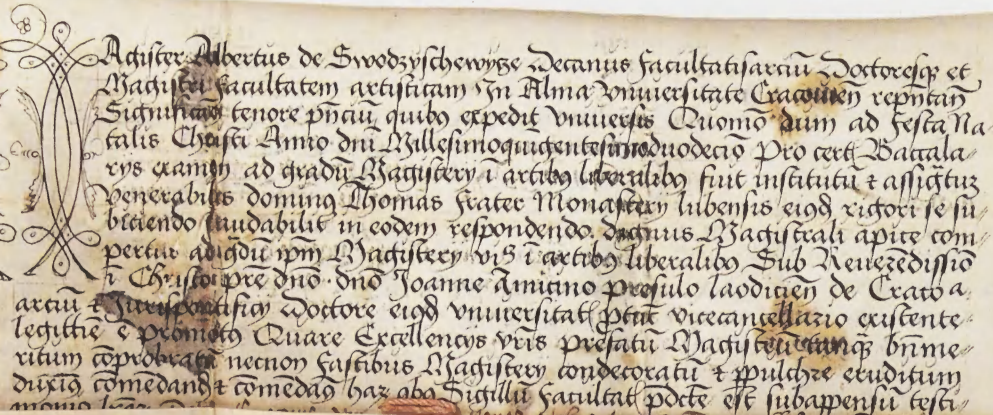 Magister Albertus de Swodzyschewysze Decanus facultatis arciũ Doctoresq̃ et
Magistri facultatem artisticam In Alma Vniuersitate Cracouieñ repñtañ
Significam9 tenore pñciũ quib9 expedit vniuersis Quomõ dum ad festa Na⸗
talis Christi Anno dñi Millesimoquigentesimoduodeciõ Pro cert Baccala⸗
rys examen ad gradũ Magistery ĩ artib9 liberalib9 fuit institutũ ⁊ assigtuȝ
Venerabilis dominus Thomas frater Monastery lubensis eiꝰd rigori se su⸗
biciendo laudabilit in eodem respondendo dignus Magistrali apice com⸗
pertur ad gdũ ipm̃ Magistery vis ĩ artib9 liberalib9 Sub Reuerẽdissiõ
ĩ Christo pr̃e dnõ dñi Joanne Amicino presulo laodicieñ de Craco a⸗
arciũ ⁊ Jurispontificy Doctore eiꝰd vniuersitat ptũc vicecancellario existente
legittie ẽ promot9 Quare Excellencys vr̃is prefatũ Magisterũ tanq̃ bñme⸗
ritum cõprobratũ necnon fascibus Magistery condecoratũ ⁊ ꝑpulchre eruditum
duxim9 cõmedand ⁊ cõmedam9 haȝ Sigillũ facultat pdcte est subappensũ testi⸗